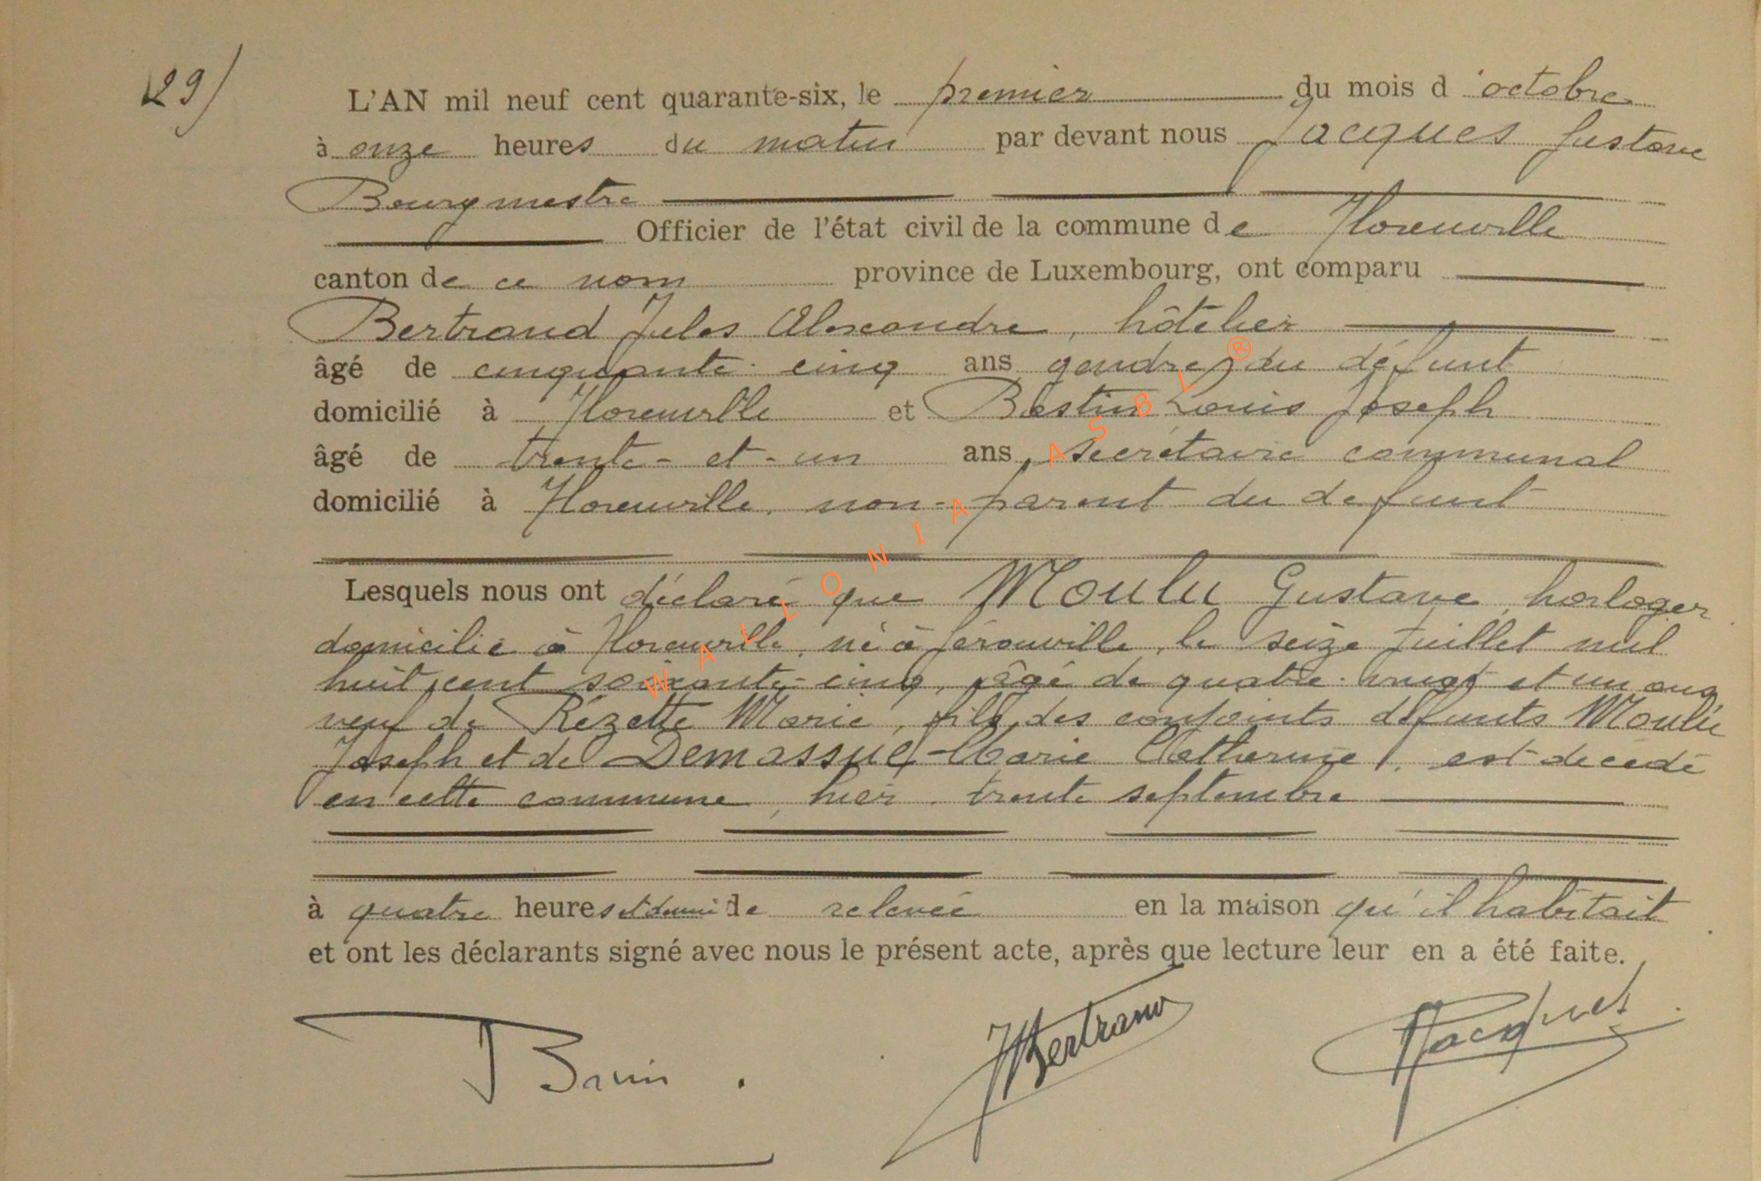 29)
L'AN mil neuf cent quarante-six, le premier du mois d'octobre
à onze heures du matin par devant nous Jacques Gustave
Bourgmestre
Officier de l'état civil de la commune de Florenville
canton de ce nom province de Luxembourg, ont comparu
Bertrand Jules Alexandre, hôtelier
âgé de cinquante-cinq ans gendre du défunt
domicilié à Florenville et Bastin Louis Joseph
âgé de trente-et-un ans, secrétaire communal
domicilié à Florenville, non-parent du défunt
Lesquels nous ont déclaré que Moulu Gustave, horloger
domicilié à Florenville, né à Gérouville, le seize juillet mil
huit cent soixante-cinq, âgé de quatre-vingt et un ans
veuf de Rézette Marie, fils des conjoints défunts Moulu
Joseph et de Demassue Marie Catherine, est décédé
en cette commune, hier, trente septembre
à quatre heures et demi de relevée en la maison qu'il habitait
et ont les déclarants signé avec nous le présent acte, après que lecture leur en a été faite.
JBertrand
Jacques
WALLONIA ASBL ®